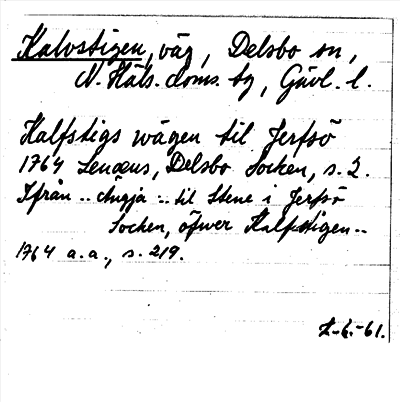 Kalvstigen, väg, Delsbo sn,
N. Häls. doms. tg, Gävl. l.
Halfstigs wägen til Jerfsö
1764 Lenæus, Delsbo Socken, s. 2.
Ifrån .. Ängja .. til Stene i Jerfsö
Socken, öfwer Kalfstigen ..
1764 a.a., s. 219.